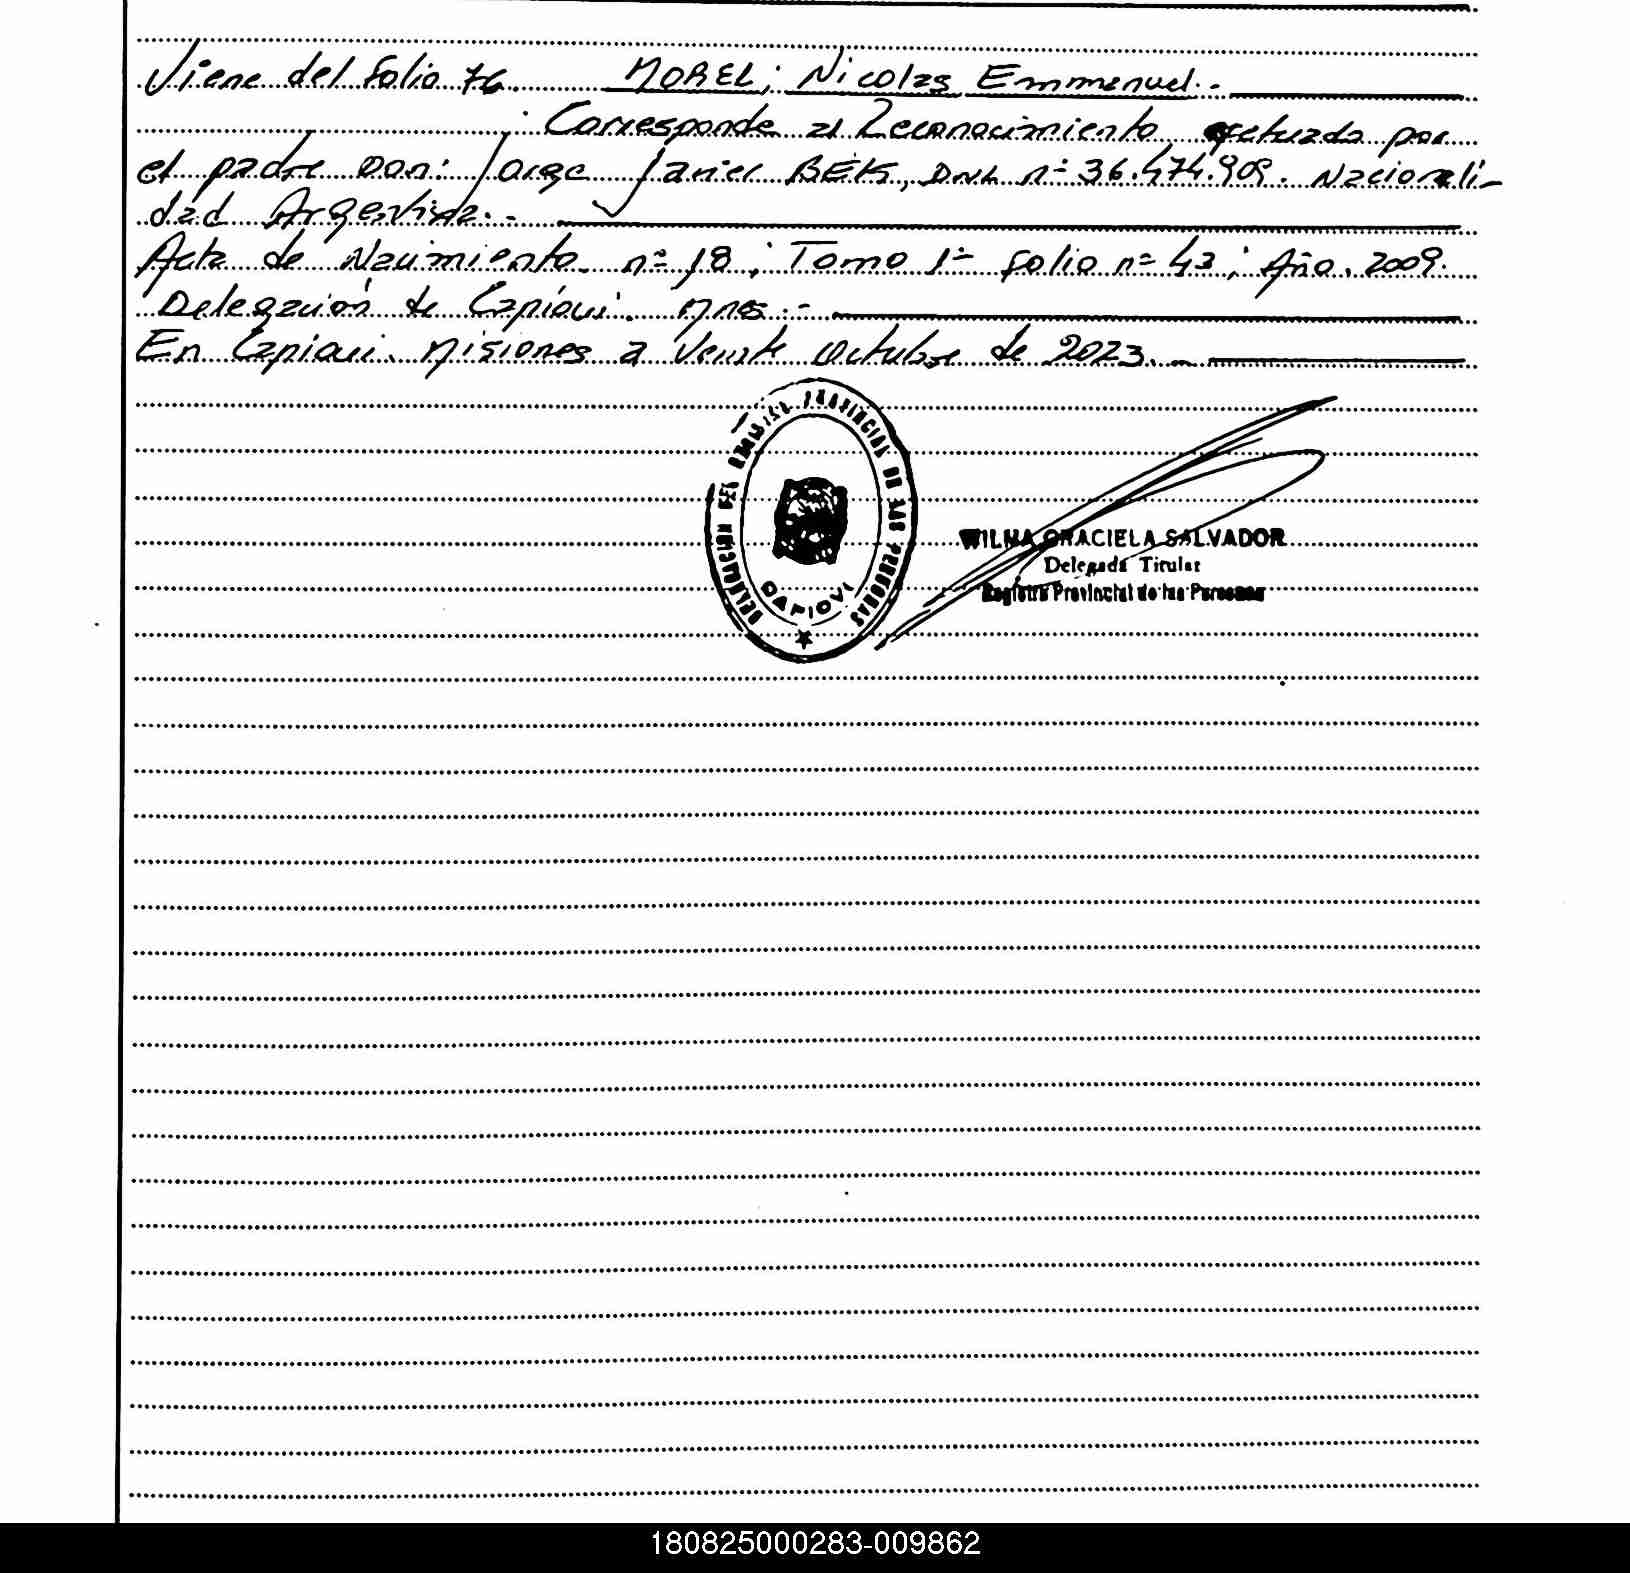 Viene del folio 76. MOREL; Nicolas Emmanuel.-
Corresponde al Reconocimiento efetuado por
el padre Don: Jorge Javier BEK, DNI. nº 36.474.909. Nacionali-
dad Argentina.-
Acta de Nacimiento. nº 18; Tomo 1º folio nº 43; Año. 2009.
Delegación de Capiovi. Mnes.-
En Capiovi. Misiones a Veinte Octubre de 2023.-
DELEGACION DEL REGISTRO PROVINCIAL DE LAS PERSONAS
CAPIOVI
WILMA GRACIELA SALVADOR
Delegada Titular
Registro Provincial de las Personas
180825000283-009862